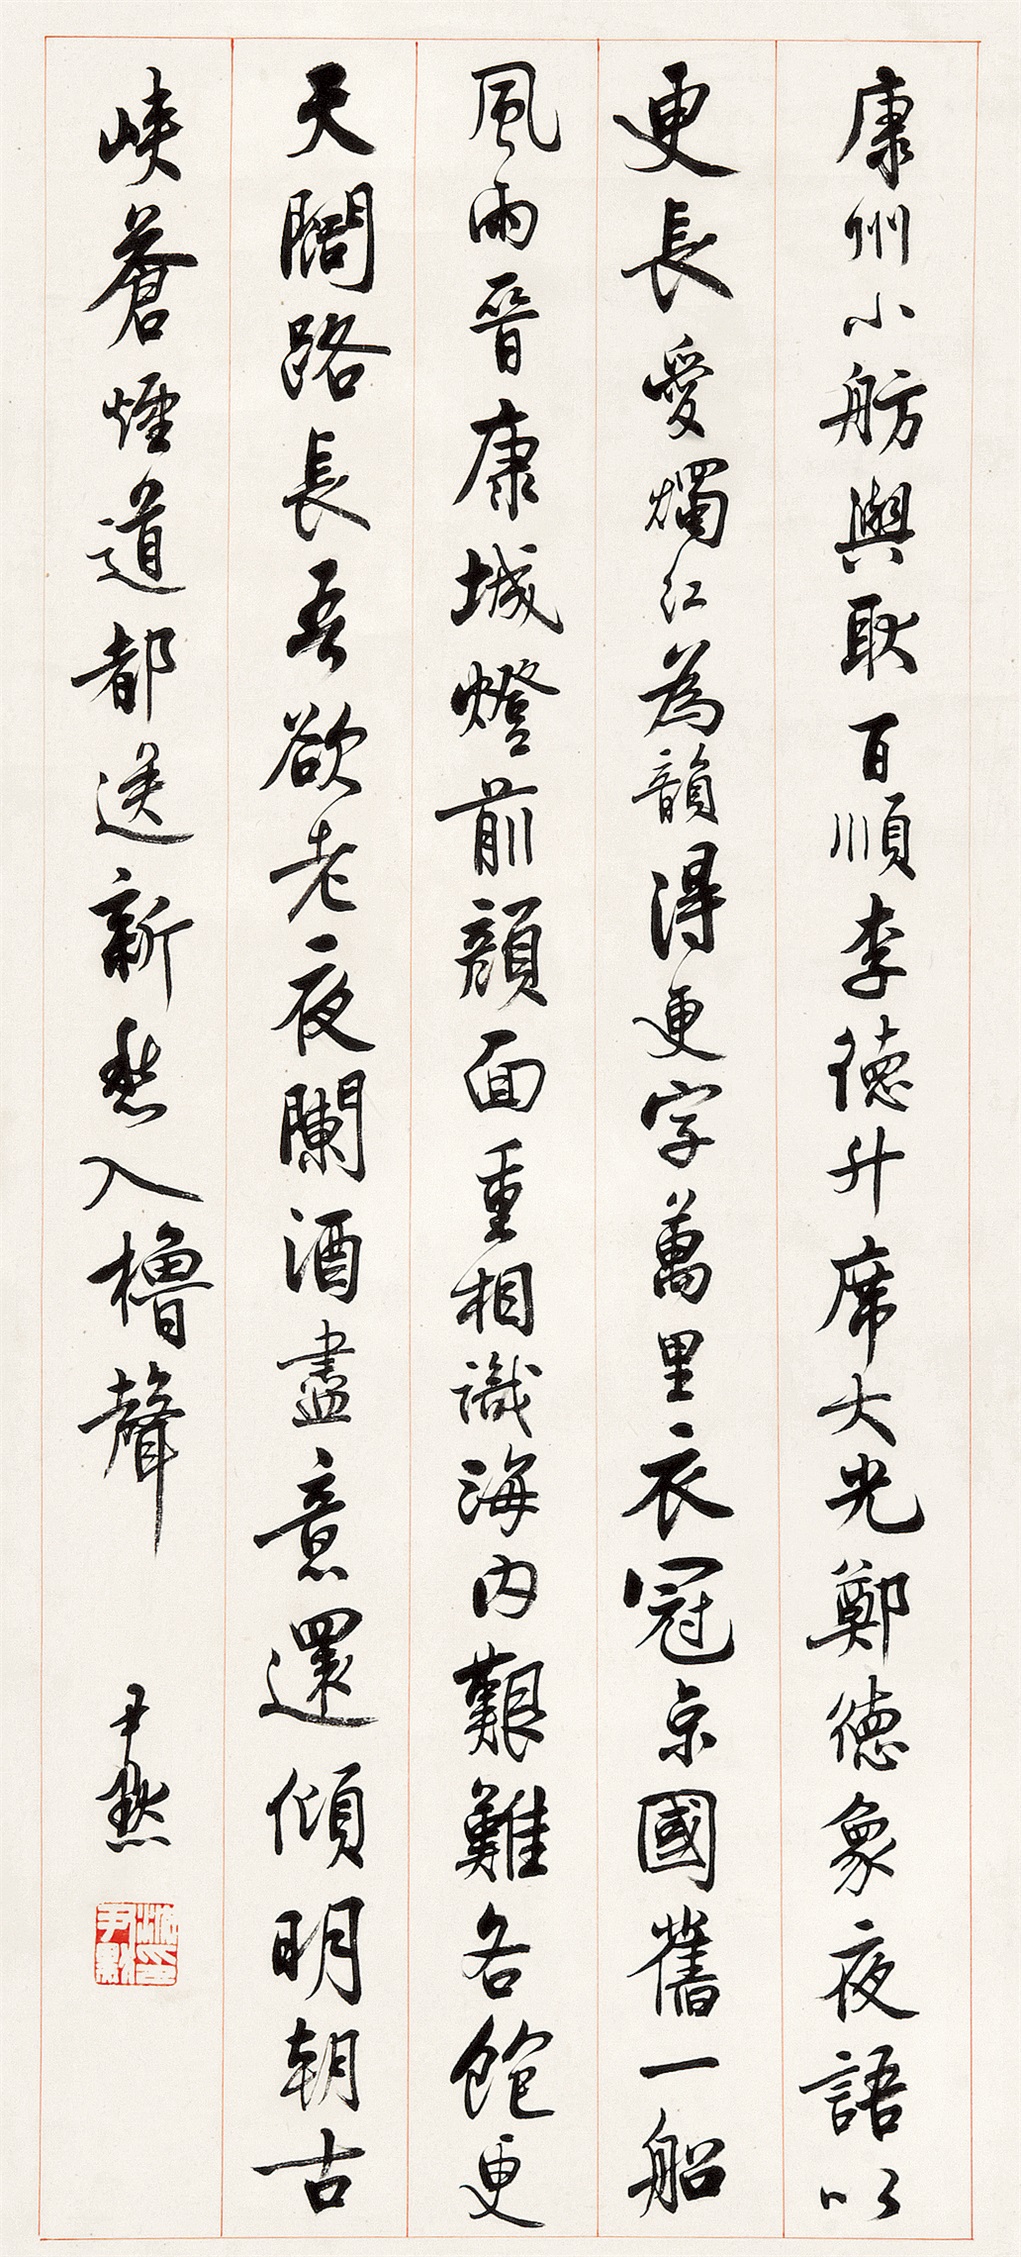 康州小舫與耿百順李德升席大光鄭德象夜語以
更長愛燭紅為韻得更字萬里衣冠京國舊一船
風雨晉康城燈前顏面重相識海內艱難各飽更
天闊路長吾欲老夜闌酒盡意還傾明朝古
峽蒼煙道都送新愁入櫓聲
尹默
沈尹默印